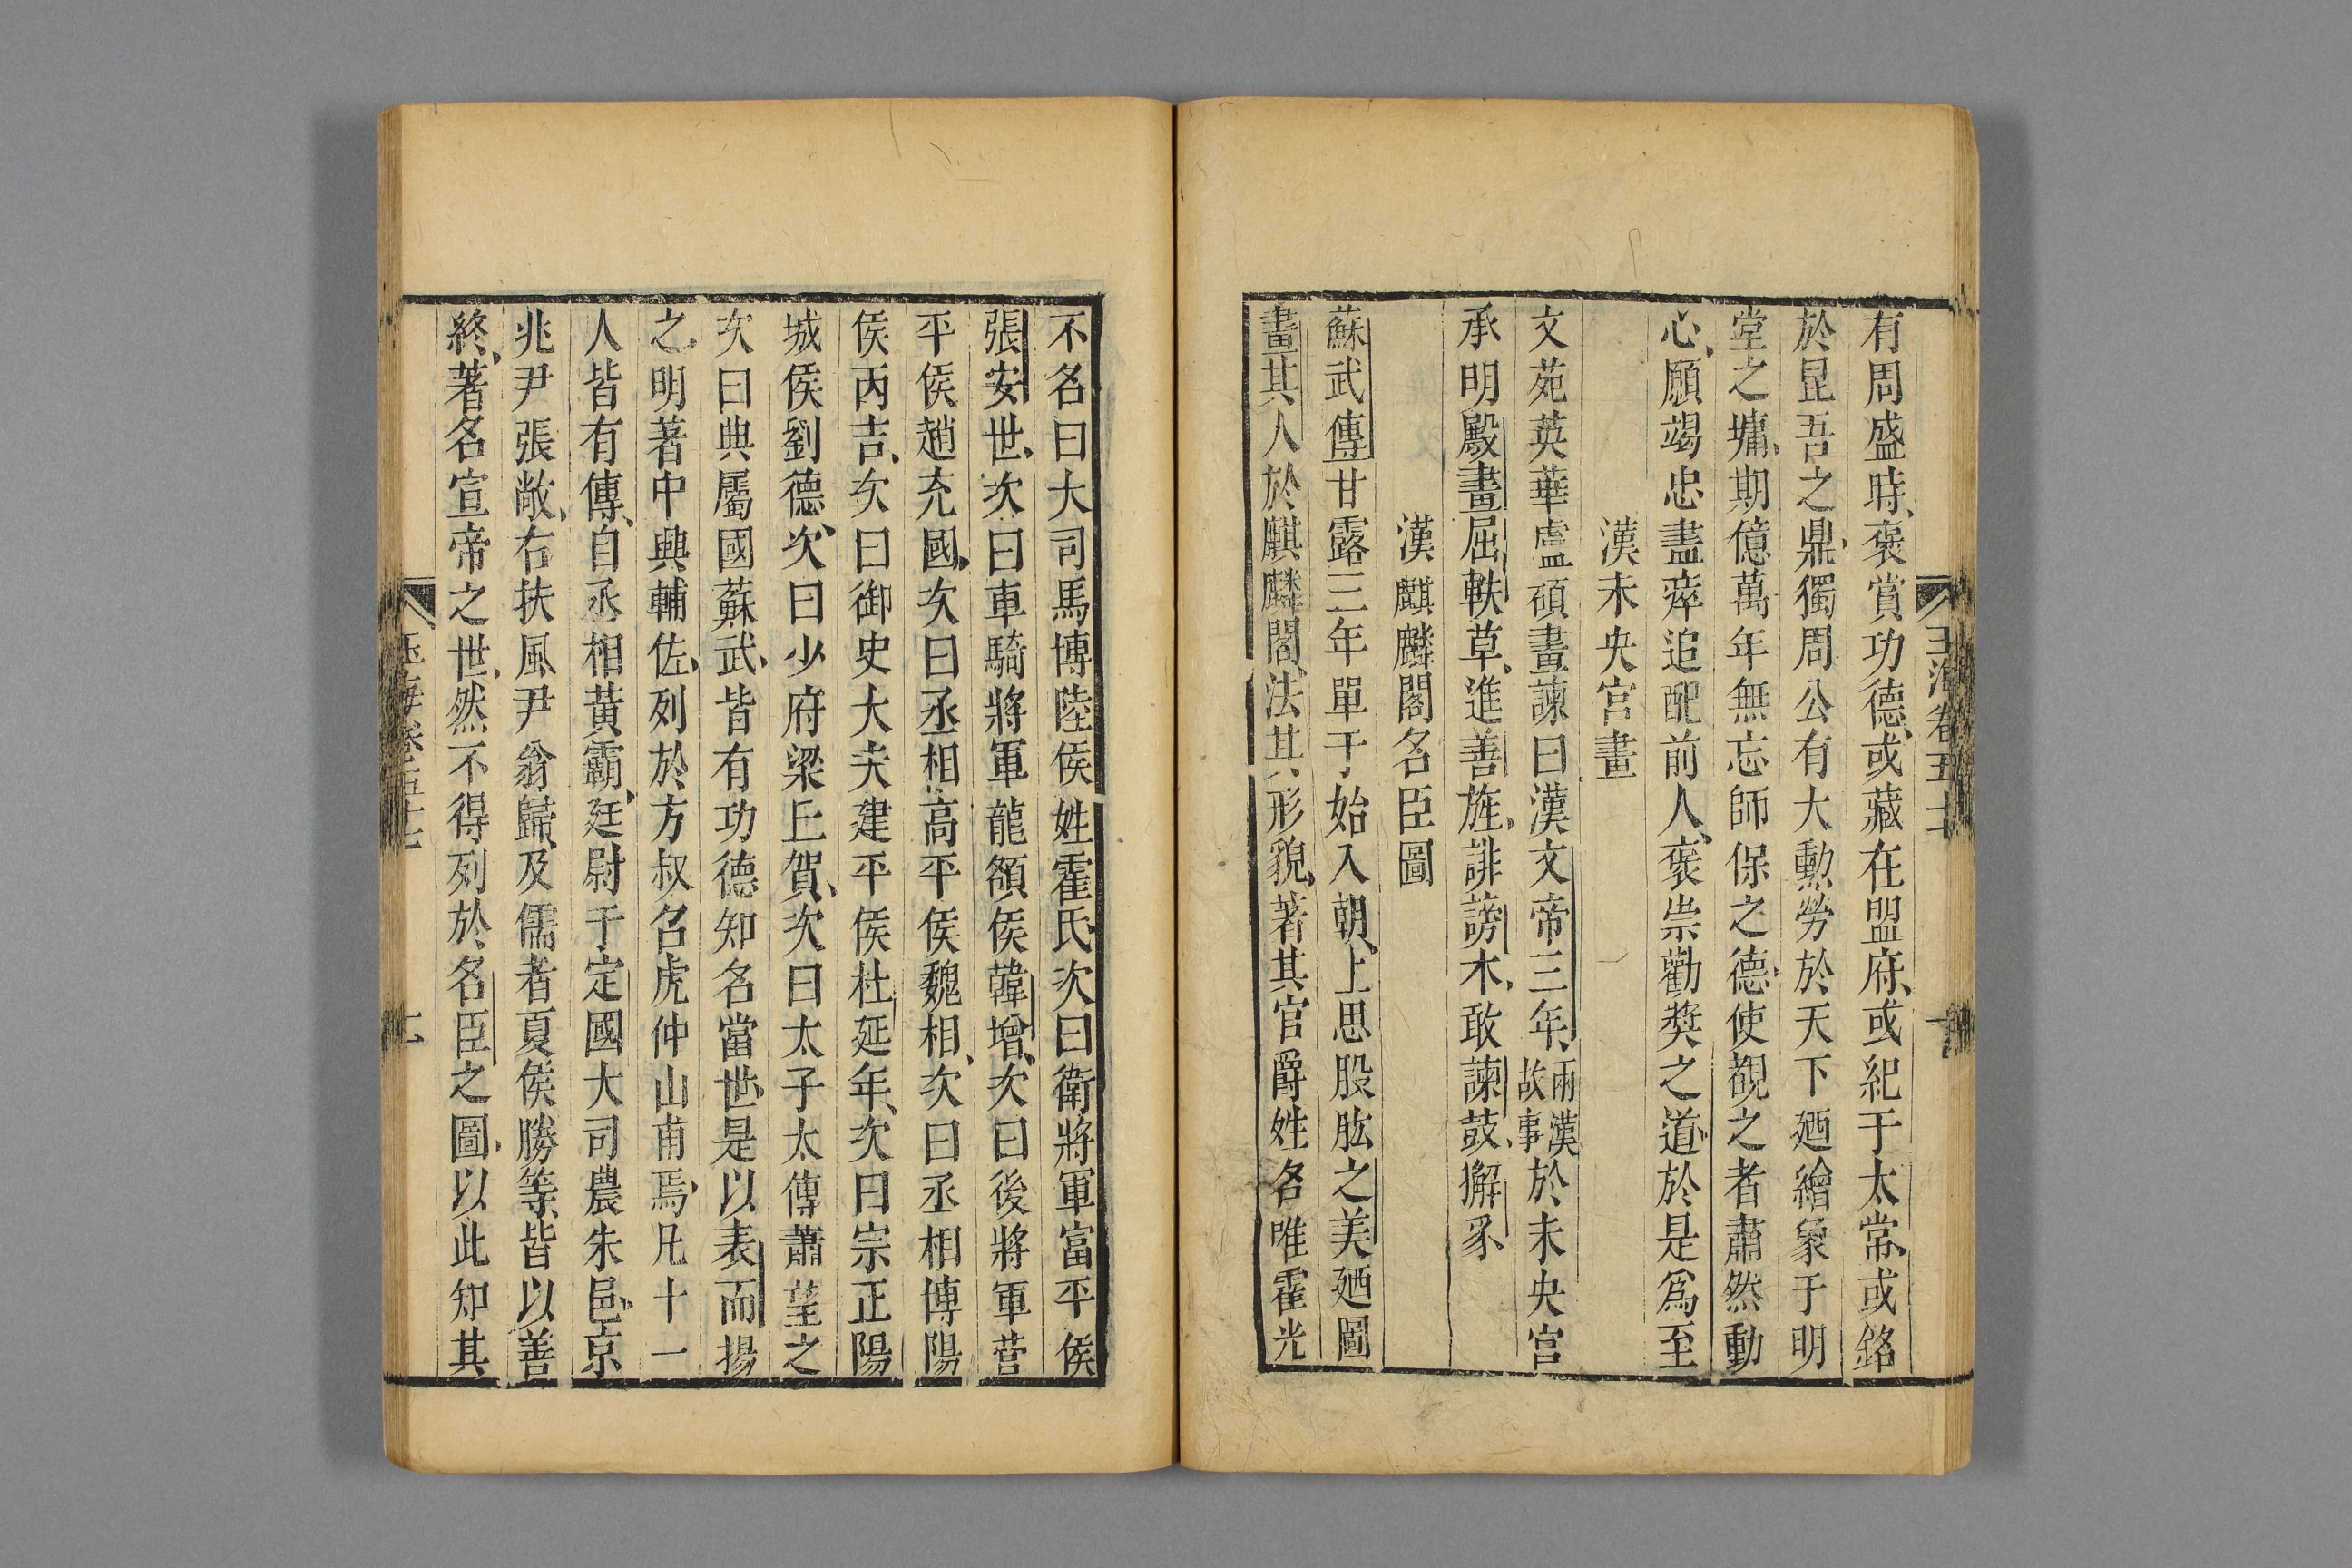 有周盛時褒賞功德或藏在盟府或紀于太常或銘
於昆吾之鼎獨周公有大勲勞於天下廼繪象于明
堂之墉期億萬年無忘師保之德使覩之者肅然動
心願竭忠盡瘁追配前人褒崇勸奬之道於是爲至
漢未央宮畫
文苑英華盧碩畫諫曰漢文帝三年兩漢故事於未央宮
承明殿畫屈軼草進善旌誹謗木敢諫鼓獬豸
漢麒麟閣名臣圖
蘇武傳甘露三年單于始入朝上思股肱之美廼圖
畫其人於麒麟閣法其形貌著其官爵姓名唯霍光
不名曰大司馬博陸侯姓霍氏次曰衛將軍富平侯
張安世次曰車騎將軍龍頟侯韓增次曰後將軍營
平侯趙充國次曰丞相高平侯魏相次曰丞相博陽
侯丙吉次曰御史大夫建平侯杜延年次曰宗正陽
城侯劉德次曰少府梁丘賀次曰太子太傅蕭望之
次曰典屬國蘇武皆有功德知名當世是以表而揚
之明著中興輔佐列於方叔召虎仲山甫焉凡十一
人皆有傳自丞相黃霸廷尉于定國大司農朱邑京
兆尹張敞右扶風尹翁歸及儒者夏侯勝等皆以善
終著名宣帝之世然不得列於名臣之圖以此知其
玉海卷五十七
七